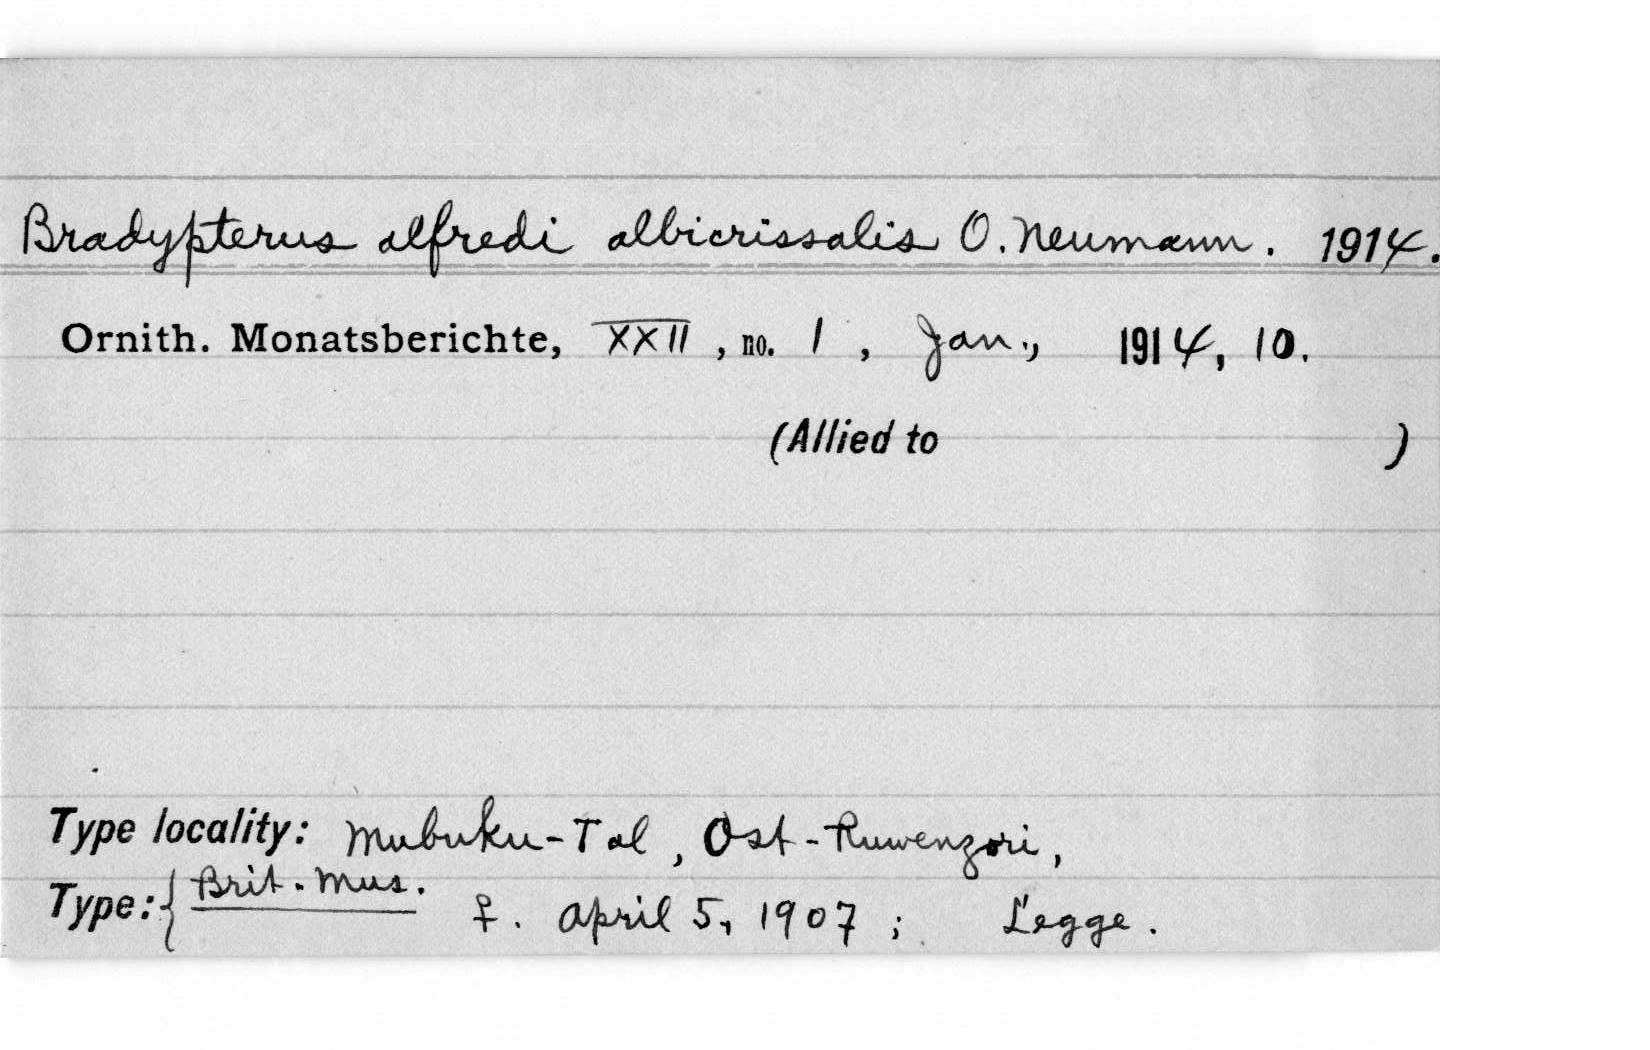 Bradypterus alfredi albicrissalis O. Neumann. 1914.
Ornith. Monatsberichte, XXII, no. 1, Jan., 1914, 10.
(Allied to )
Type locality: Mubuku-Tal, Ost-Ruwenzori,
Type: { Brit. Mus. ♀. April 5, 1907; Legge.